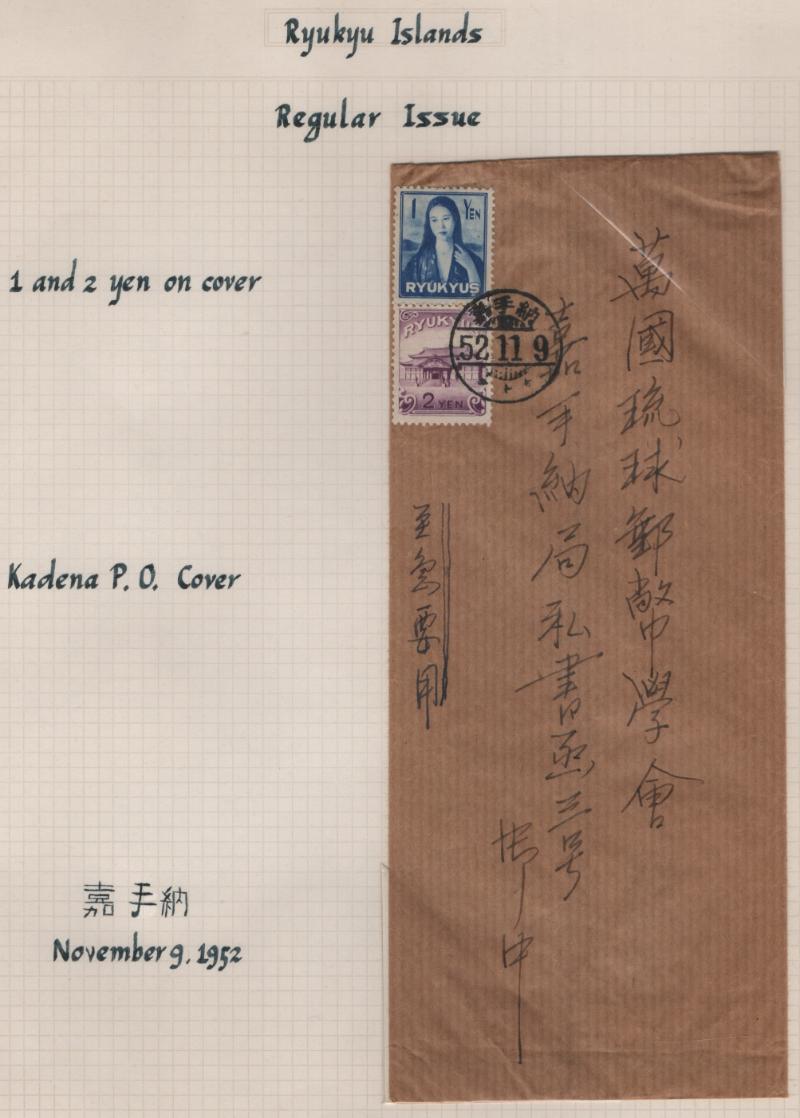 Ryukyu Islands
Regular Issue
1 and 2 yen on cover
Kadena P. O. Cover
嘉手納
November 9, 1952
1 YEN
RYUKYUS
RYUKYUS
2 YEN
嘉手納
52 11 9
萬國琉球郵幣學會
嘉手納局私書函三号
御中
至急要用